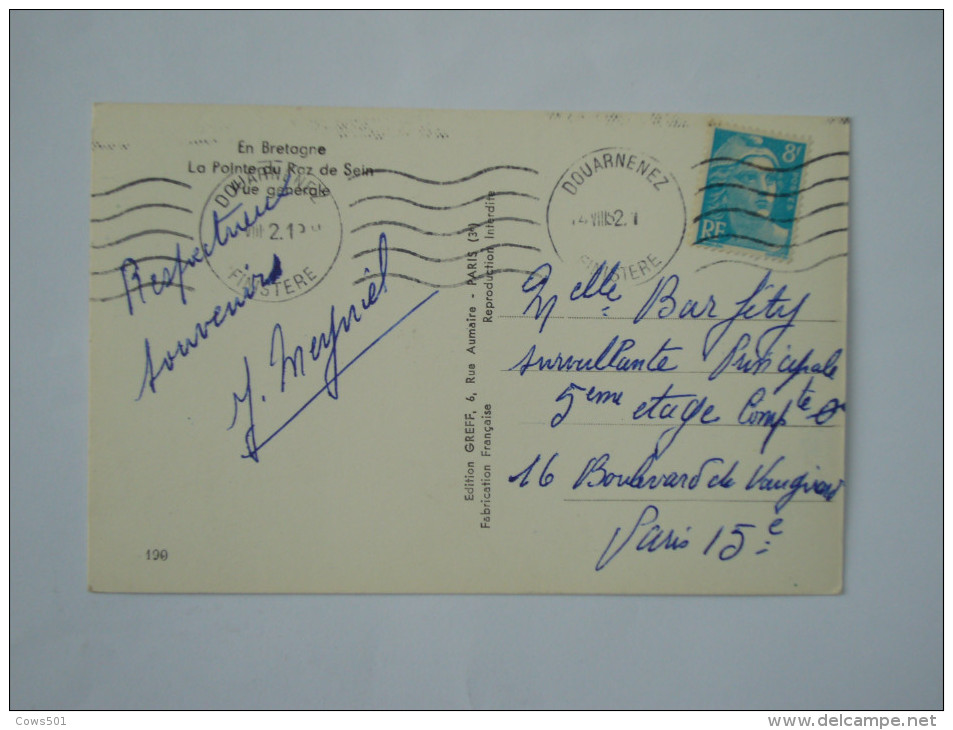 En Bretagne
La Pointe du Raz de Sein
Vue générale
DOUARNENEZ
FINISTERE
Respectueux
souvenirs
Y. Meyniel
190
Edition GREFF, 6, Rue Aumaire - PARIS (3e)
Fabrication Française
Reproduction Interdite
DOUARNENEZ
VIII 52
FINISTERE
8F
RF
Melle Bar Fety
surveillante Principale
5eme etage Compte
16 Boulevard de Vaugirard
Paris 15e
Cows501
www.delcampe.net